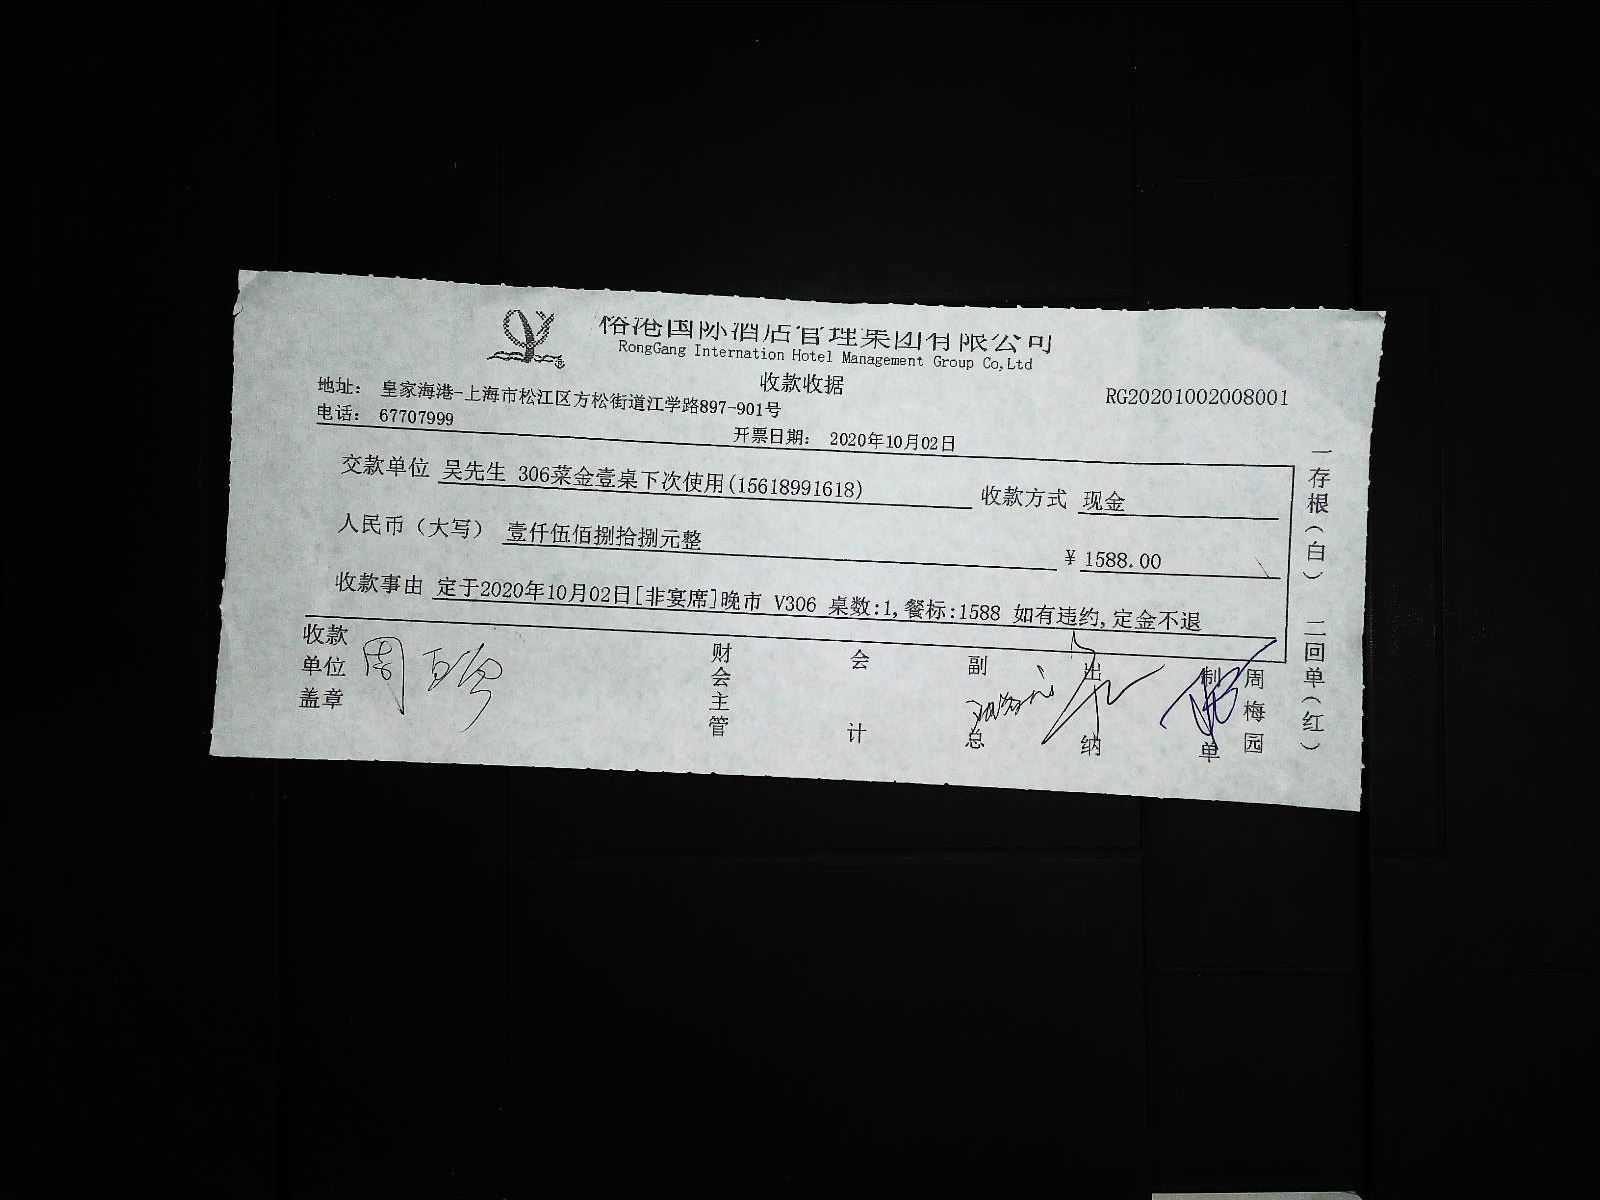 榕港国际酒店管理集团有限公司
RongGang Internation Hotel Management Group Co,Ltd
收款收据
地址： 皇家海港-上海市松江区方松街道江学路897-901号
RG20201002008001
电话： 67707999
开票日期： 2020年10月02日
交款单位 吴先生 306菜金壹桌下次使用(15618991618) 收款方式 现金
人民币（大写） 壹仟伍佰捌拾捌元整 ¥ 1588.00
收款事由 定于2020年10月02日[非宴席]晚市 V306 桌数:1,餐标:1588 如有违约,定金不退
收款单位盖章
财会主管
会计
副总
出纳
制单
周梅园
一存根（白） 二回单（红）